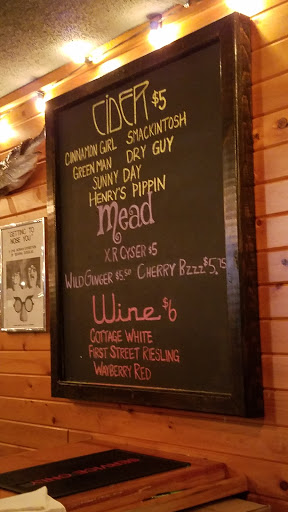 CIDER $5
CINNAMON GIRL SMACKINTOSH
GREEN MAN DRY GUY
SUNNY DAY
HENRY'S PIPPIN
Mead
X.R CYSER $5
WILD GINGER $5.50 CHERRY BZZZ $5.75
Wine $6
COTTAGE WHITE
FIRST STREET RIESLING
WAYBERRY RED
GETTING TO
NOSE YOU